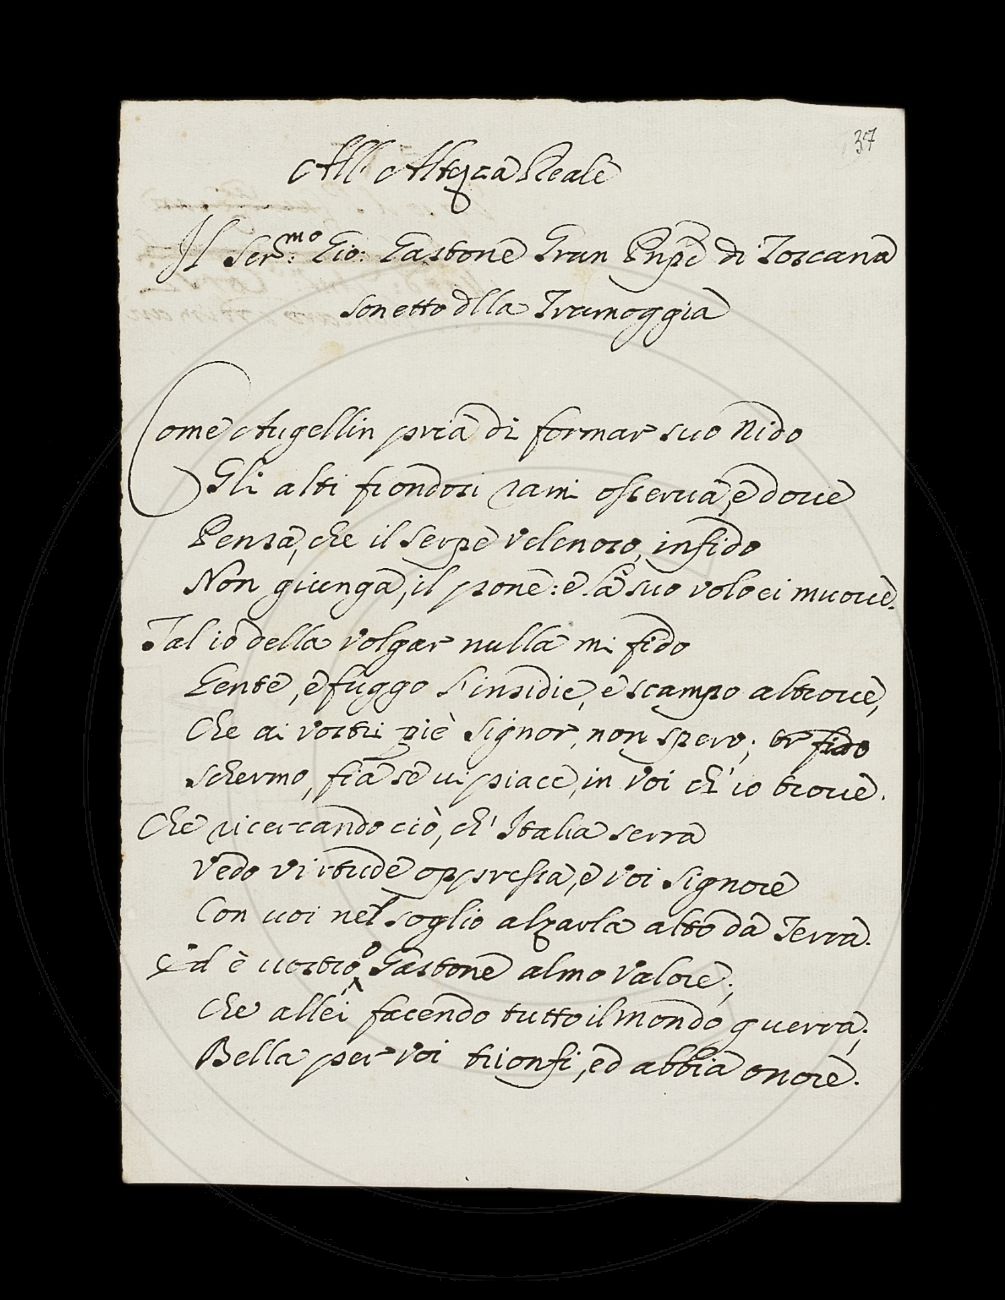 37
All' Altezza Reale
Il Ser.mo Gio: Gastone Gran Pnpe di Toscana
Sonetto dlla Tramoggia
Come Augellin pria di formar suo Nido
Gli alti frondosi rami osserva, e dove
Pensa, che il Serpe velenoso, infido
Non giunga, il pone: e là suo volo ei muove.
Tal io della volgar nulla mi fido
Gente, e fuggo l'insidie, e scampo altrove,
Che ai vostri piè Signor, non spero; or fido
schermo, fia se vi piace, in voi ch'io trove.
Che ricercando ciò, ch'Italia serra
Vedo virtude oppressa, e voi Signore
Con voi nel soglio alzarla alto da Terra.
Ed è vostro o Gastone almo valore;
Che allei facendo tutto il mondo guerra;
Bella per voi trionfi, ed abbia onore.